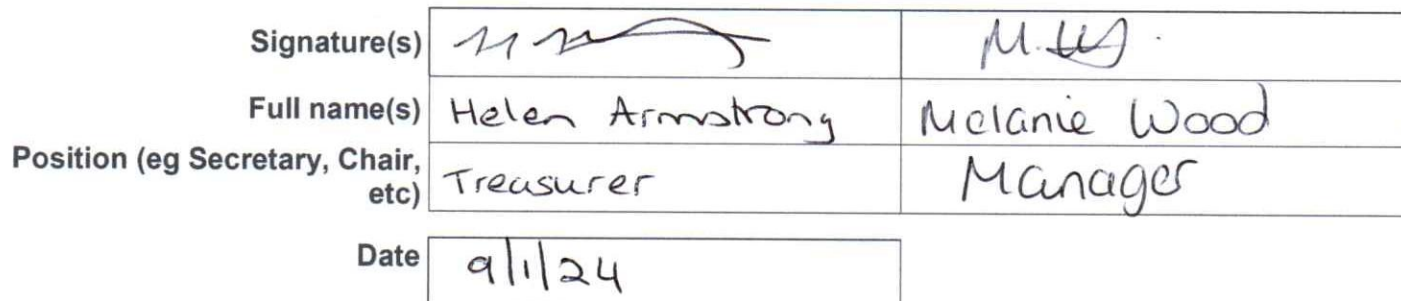 Signature(s)
Full name(s) Helen Armstrong Melanie Wood
Position (eg Secretary, Chair,
etc) Treasurer Manager
Date 9/1/24